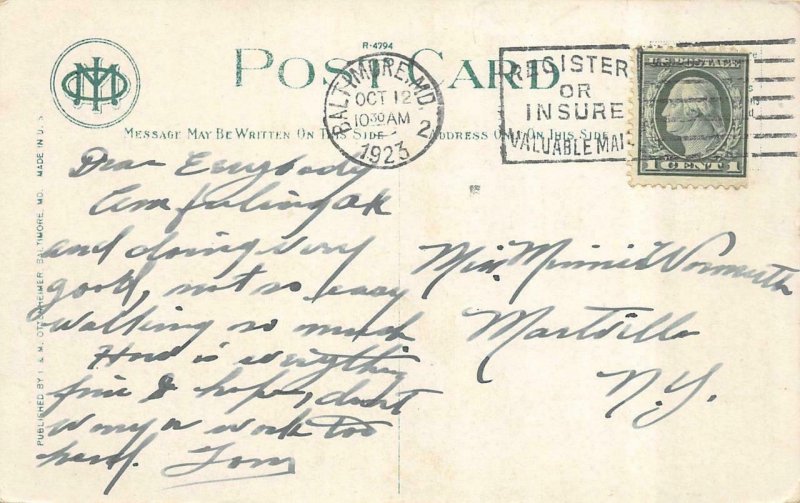 R-4794
POST CARD
MESSAGE MAY BE WRITTEN ON THIS SIDE
ADDRESS ONLY ON THIS SIDE
BALTIMORE, MD.
OCT 12
10 30 AM
1923
2
REGISTER
OR
INSURE
VALUABLE MAIL
U.S. POSTAGE
1 CENT 1
PUBLISHED BY I. & M. OTTENHEIMER, BALTIMORE, MD. MADE IN U.S.
Dear Everybody
Am feeling OK
and doing very
good, not so easy
walking so much
How is everything
fine I hope, don't
worry or work too
hard. Tom
Miss Minnie Wormuth
Martville
N.Y.